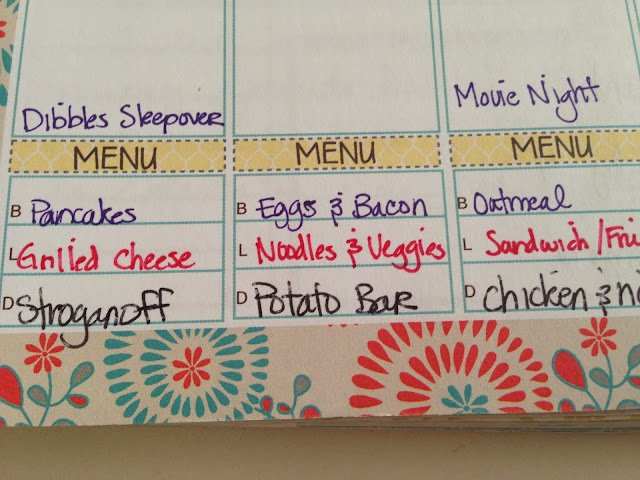 Dibbles Sleepover
Movie Night
MENU
MENU
MENU
B Pancakes
B Eggs & Bacon
B Oatmeal
L Grilled cheese
L Noodles & Veggies
L Sandwich/Fri
D Stroganoff
D Potato Bar
D Chicken &